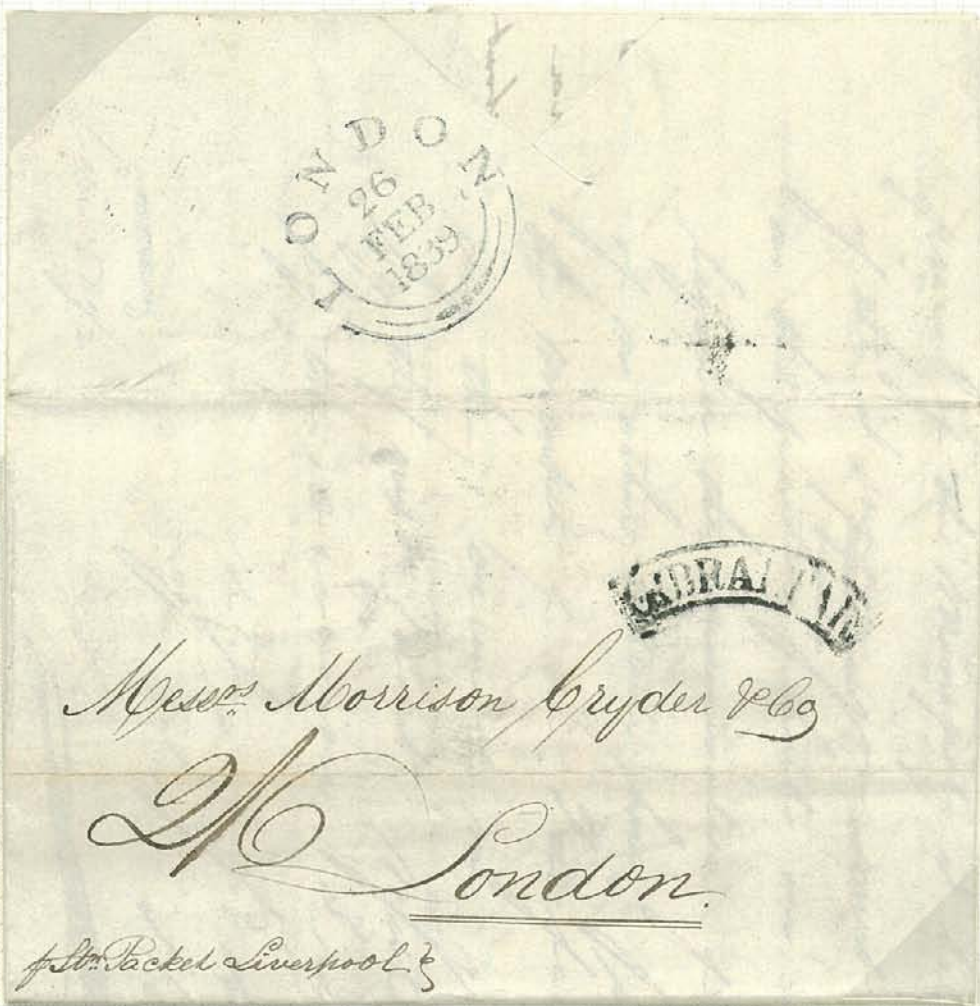 LONDON
26
FEB
1839
GIBRALTAR
Messrs. Morrison Cryder & Co
2/6
London.
p Stm. Packet Liverpool